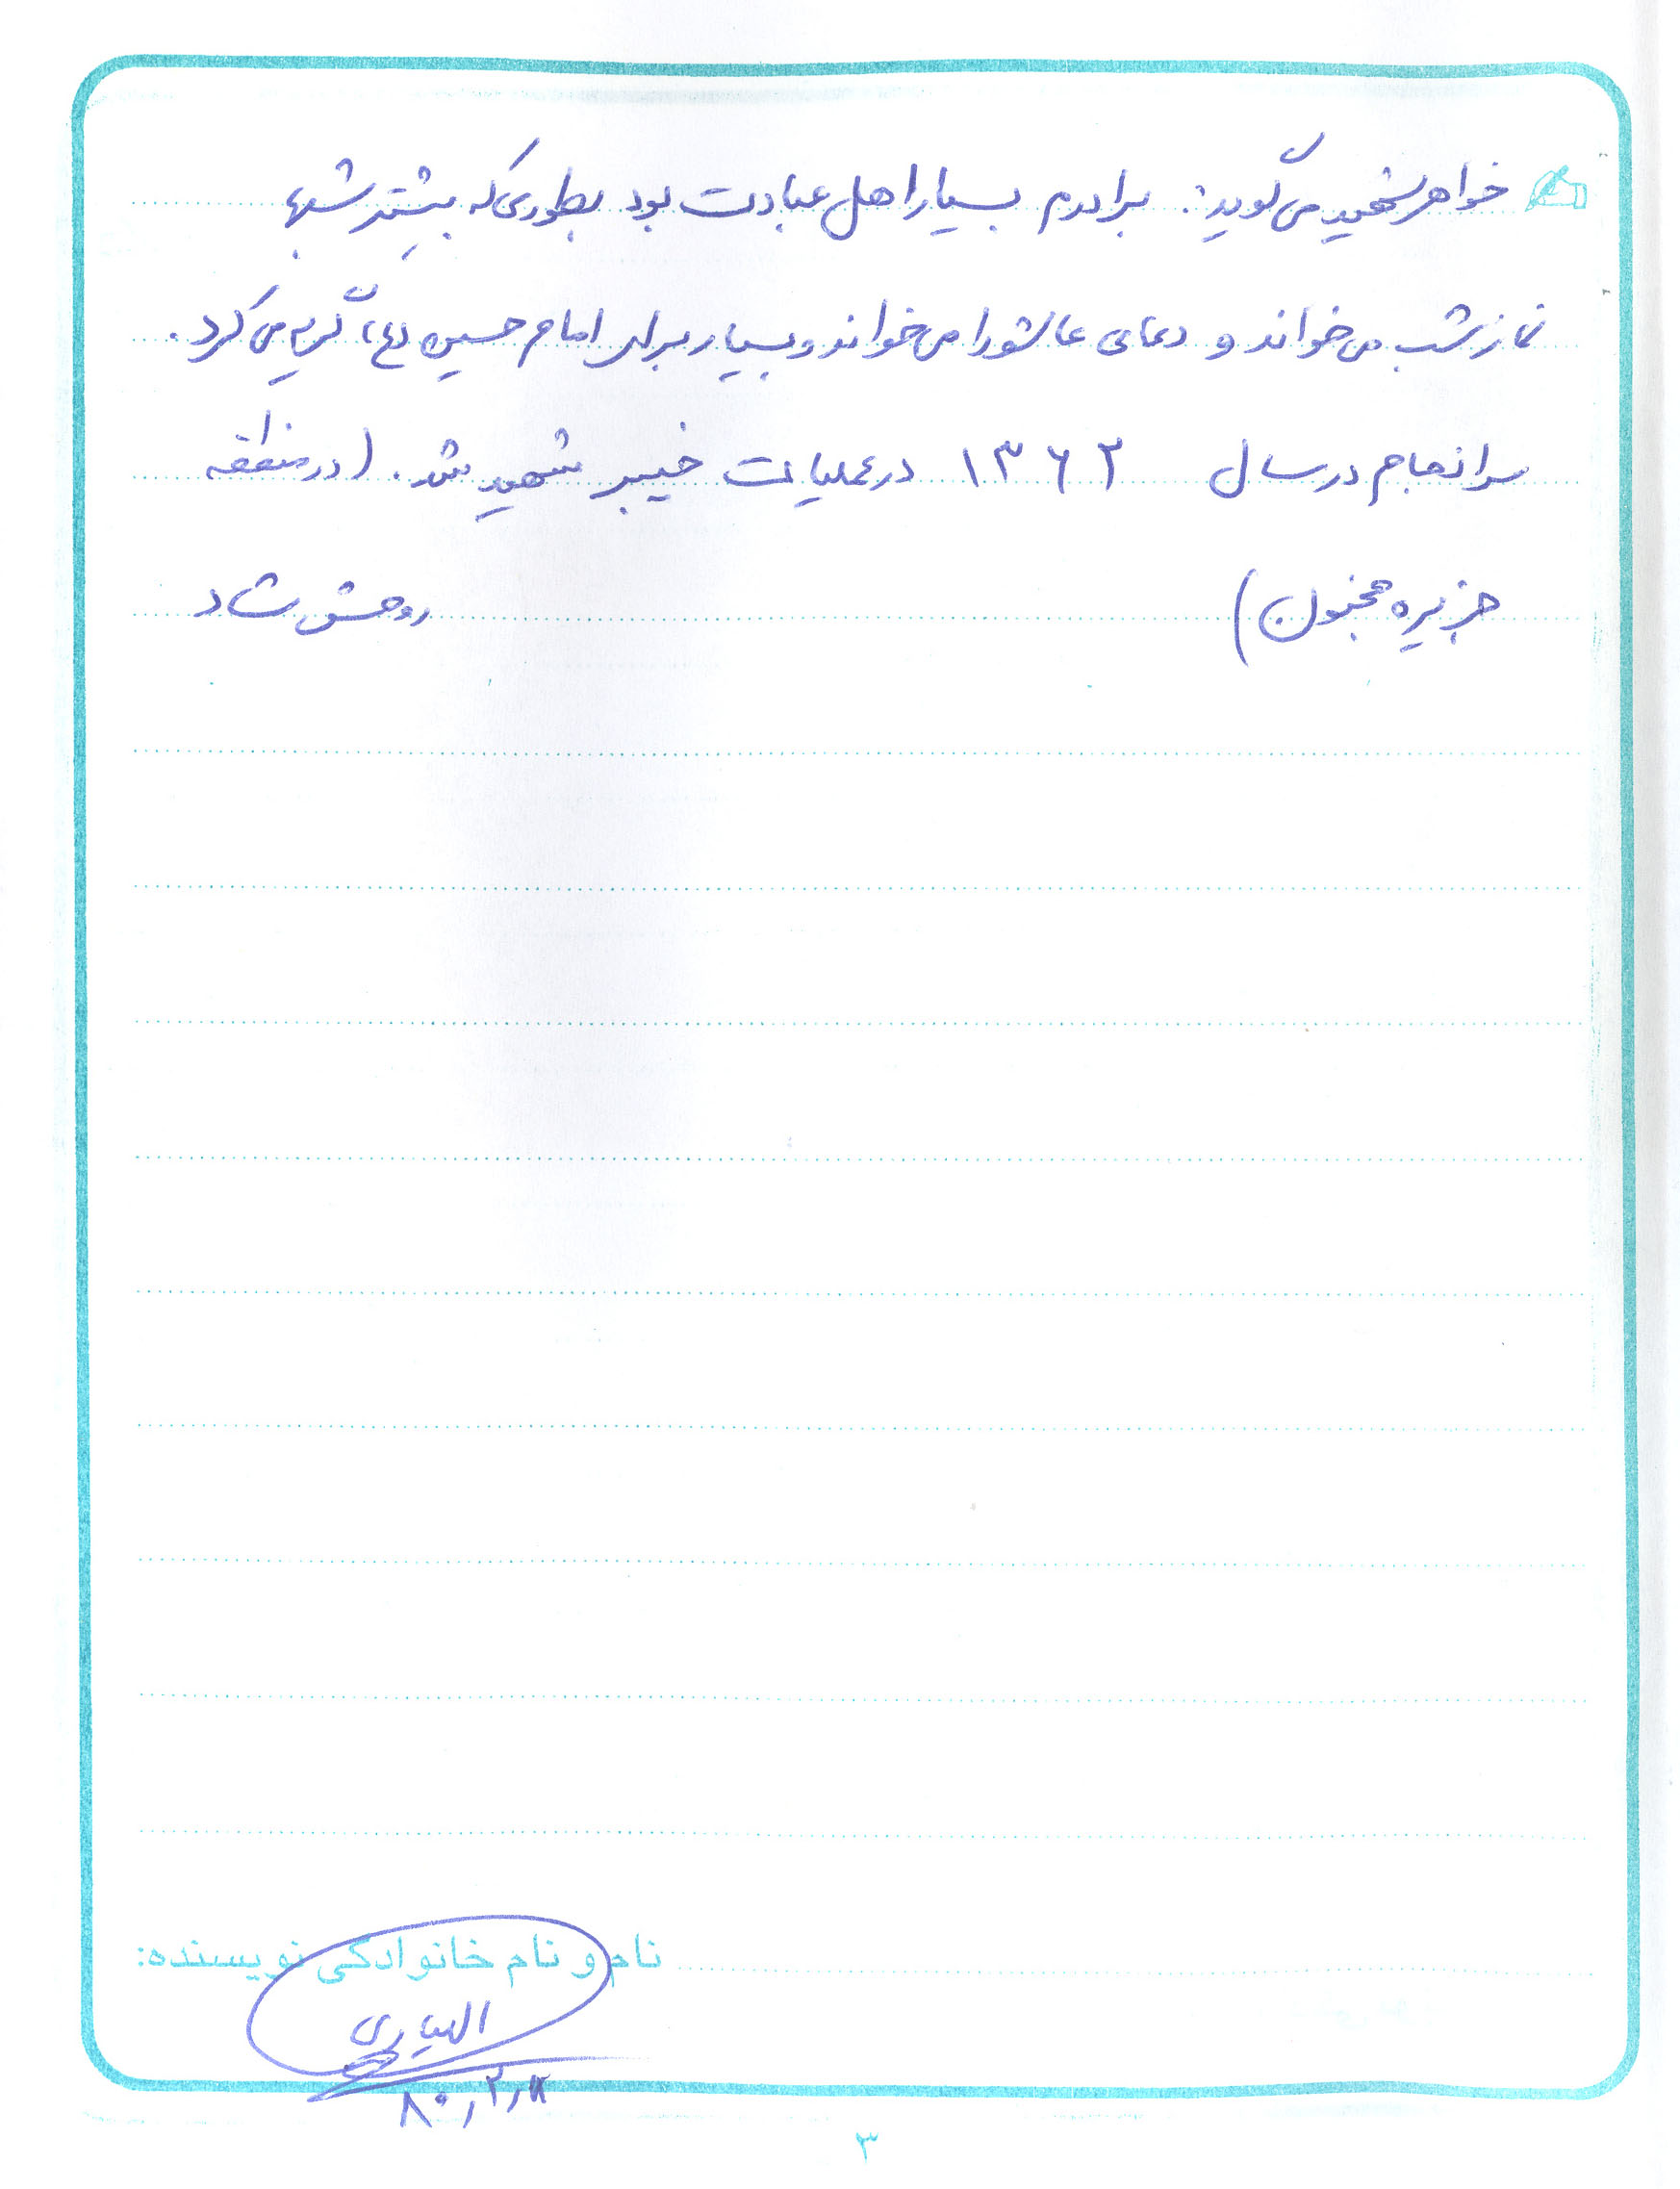 خواهر شهید می گوید: برادرم بسیار اهل عبادت بود بطوری که بیشتر شبها
نماز شب می خواند و دعای عاشورا می خواند و بسیار برای امام حسین (ع) گریه می کرد.
سرانجام در سال ۱۳۶۲ در عملیات خیبر شهید شد. (در منطقه
جزیره مجنون) روحش شاد
نام و نام خانوادگی نویسنده:
الهیاری
۳